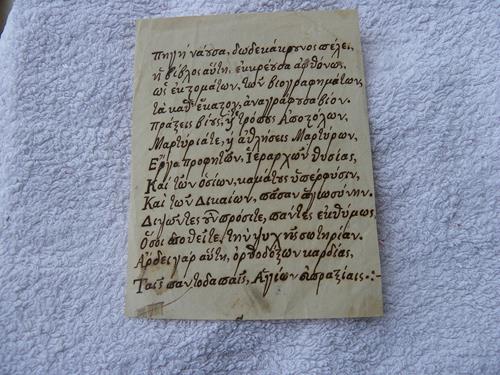 Πηγὴ νάουσα, δωδεκάκρυνος πέλει,
ἡ βίβλος αὕτη, ἐκρέουσα ἀφθόνως,
ὡς ἐκ στομάτων, τῶν βιογραφημάτων,
τὰ καθ' ἕκαστον, ἀναγράφουσα βίον.
πράξεις βίους, τρόπους Ἀποστόλων,
Μαρτύρια τε, ἀθλήσεις Μαρτύρων,
Ἔργα προφητῶν, Ἱεραρχῶν θυσίας,
Καὶ τῶν ὁσίων, καμάτους ὑπερφύσιν,
Καὶ τῶν Δικαίων, πᾶσαν ἁγιωσύνην.
Διψῶντες οὖν πρόσιτε, πάντες ἐκθύμως,
Ὅσοι ποθεῖτε, τὴν ψυχῆς σωτηρίαν.
Ἄρδει γὰρ αὕτη, ὀρθοδόξων καρδίας,
Ταῖς παντοδαπαῖς, Ἁγίων